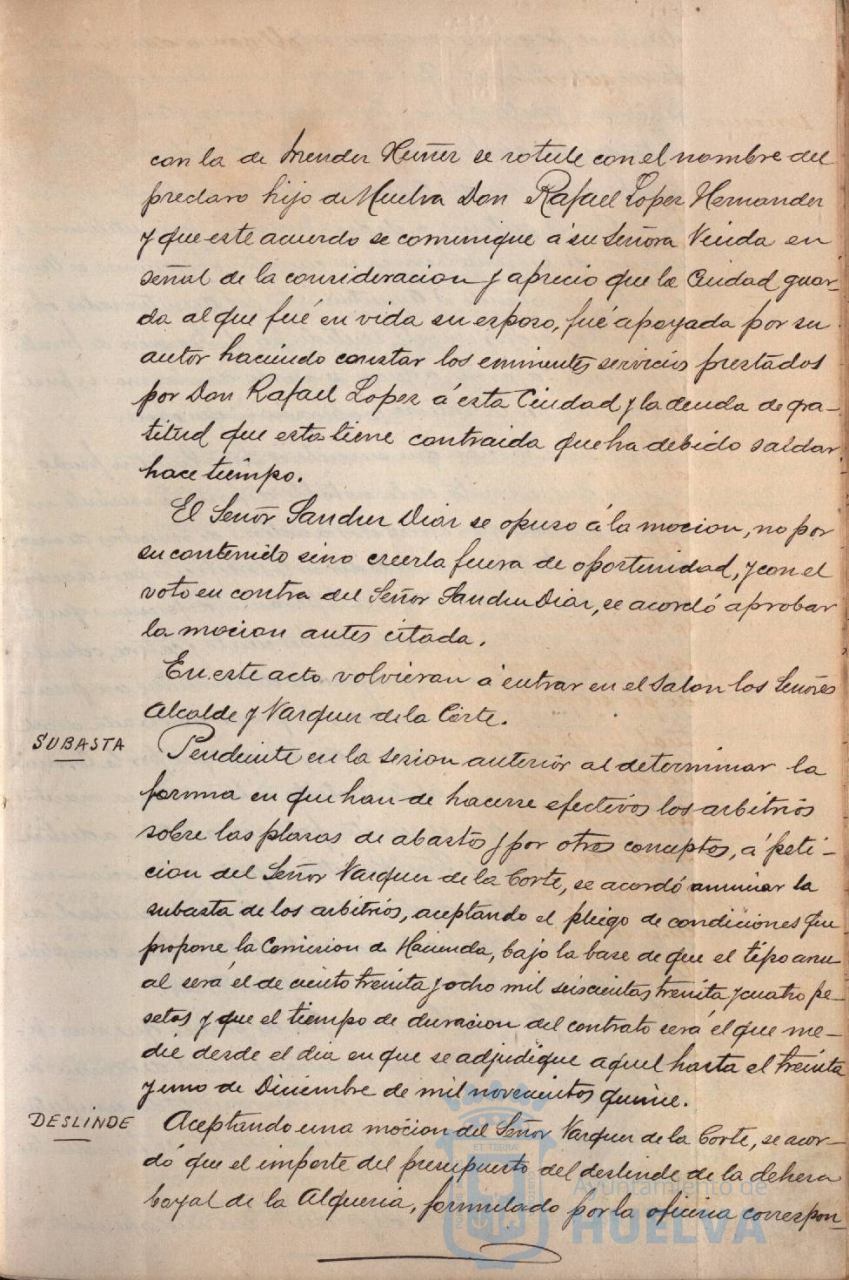 con la de Mendez Nuñez se rotule con el nombre del
preclaro hijo de Huelva Don Rafael Lopez Hernandez
y que este acuerdo se comunique á su Señora Viuda en
señal de la consideracion y aprecio que la Ciudad guar-
da al que fué en vida su esposo, fué apoyada por su
autor haciendo constar los eminentes servicios prestados
por Don Rafael Lopez á esta Ciudad y la deuda de gra-
titud que esta tiene contraida que ha debido saldar
hace tiempo.
El Señor Sanchez Diaz se opuso á la mocion, no por
su contenido sino creerla fuera de oportunidad, y con el
voto en contra del Señor Sanchez Diaz, se acordó aprobar
la mocion antes citada.
En este acto volvieran á entrar en el Salon los Señores
Alcalde y Vazquez de la Corte.
SUBASTA
Pendiente en la sesion anterior al determinar la
forma en que han de hacerse efectivos los arbitrios
sobre las plazas de abastos y por otros conceptos, á peti-
cion del Señor Vazquez de la Corte, se acordó anunciar la
subasta de los arbitrios, aceptando el pliego de condiciones que
propone la Comision de Hacienda, bajo la base de que el tipo anu-
al será el de ciento treinta y ocho mil seiscientas treinta y cuatro pe-
setas y que el tiempo de duracion del contrato será el que me-
die desde el dia en que se adjudique aquel hasta el treinta
y uno de Diciembre de mil novecientos quince.
DESLINDE
Aceptando una mocion del Señor Vazquez de la Corte, se acor-
dó que el importe del presupuesto del deslinde de la dehesa
boyal de la Alqueria, formulado por la oficina correspon-
Ayuntamiento de
HUELVA